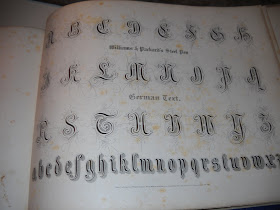 A B C D E F G H
Williams & Packard's Steel Pen
I K L M N O P Q
German Text.
R S T U V W Y Z
abcdefghiklmnopqrstuvwxz